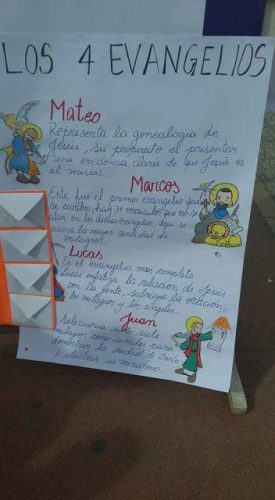 LOS 4 EVANGELIOS
Mateo
Representa la genealogía de
Jesús, su proposito es presentar
una evidencia clara de que Jesus es
el mesías.
Marcos
Este fue el primer evangelio que
se escribio, hay 31 versiculos que no se
en los demas evangelios. aqui se
narra la mayor cantidad de
milagros.
Lucas
Es el evangelio mas completo
lucas enfatiza la relacion de Jesús
con la gente, subraya la oración,
los milagros y los angeles.
Juan
Selecciona solo siete
milagros como señales para
demostrar la de Cristo
e su ministerio.